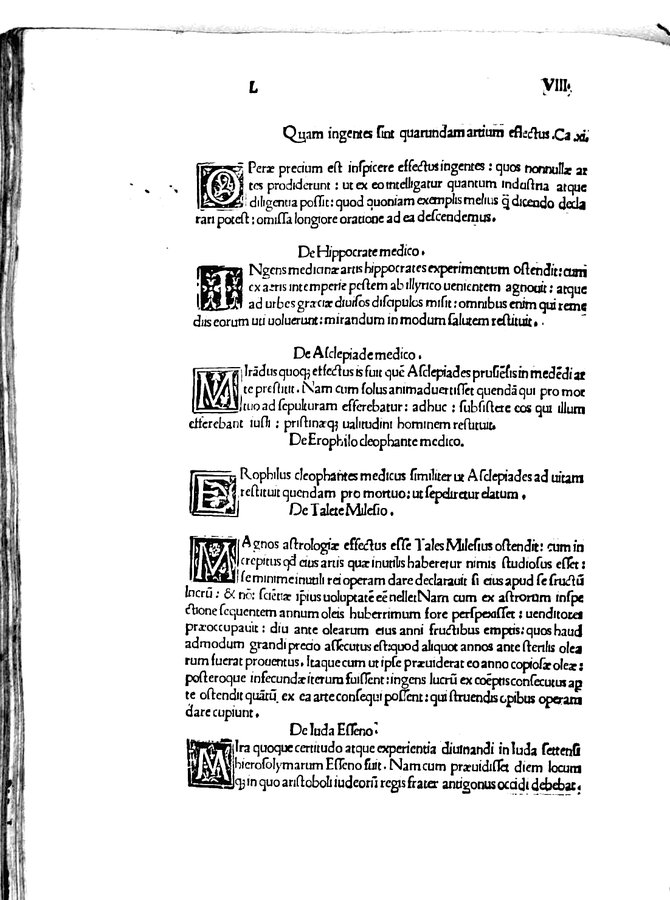 L VIII.
Quam ingentes sint quarundam artium effectus. Ca. xi.
OPeræ precium est inspicere effectus ingentes: quos nonnullæ ar
tes prodiderunt: ut ex eo intelligatur quantum industria atque
diligentia possit: quod quoniam exemplis melius q̃ dicendo decla
rari potest: omissa longiore oratione ad ea descendemus.
De Hippocrate medico.
INgens medicinæ artis hippocrates experimentum ostendit: cum
ex aeris intemperie pestem ab illyrico uenientem agnouit: atque
ad urbes græciæ diuisos discipulos misit: omnibus enim qui reme
diis eorum uti uoluerunt: mirandum in modum salutem restituit.
De Asclepiade medico.
MIrādus quoq; effectus is fuit quē Asclepiades prusiēsis in medēdi ar
te prestitit. Nam cum solus animaduertisset quendā qui pro mor
tuo ad sepulturam efferebatur: adhuc: subsistere eos qui illum
efferebant iussit: pristinæq; ualitudini hominem restituit.
De Erophilo cleophante medico.
ERophilus cleophantes medicus similiter ut Asclepiades ad uitam
restituit quendam pro mortuo: ut sepeliretur elatum.
De Talete Milesio.
MAgnos astrologiæ effectus esse Tales Milesius ostendit: cum in
crepitus qđ eius artis quæ inutilis haberetur nimis studiosus esset:
se minime inutili rei operam dare declarauit si eius apud se fructū
lucrū: & nō: sciētiæ ipsius uoluptatē eē nellet Nam cum ex astrorum inspe
ctione sequentem annum oleis huberrimum fore perspexisset: uenditores
præoccupauit: diu ante olearum eius anni fructibus emptis: quos haud
admodum grandi precio assecutus est: quod aliquot annos ante sterilis olea
rum fuerat prouentus. Itaque cum ut ipse præuiderat eo anno copiosæ oleæ:
posteroque infecundæ iterum fuissent: ingens lucrū ex cœptis consecutus ap
te ostendit quātū ex ea arte consequi possent: qui struendis opibus operam
dare cupiunt.
De Iuda Esseno.
MIra quoque certitudo atque experientia diuinandi in Iuda fettensi
hierosolymarum Esseno fuit. Nam cum præuidisset diem locum
q; in quo aristoboli iudeorū regis frater antigonus occidi debebat.